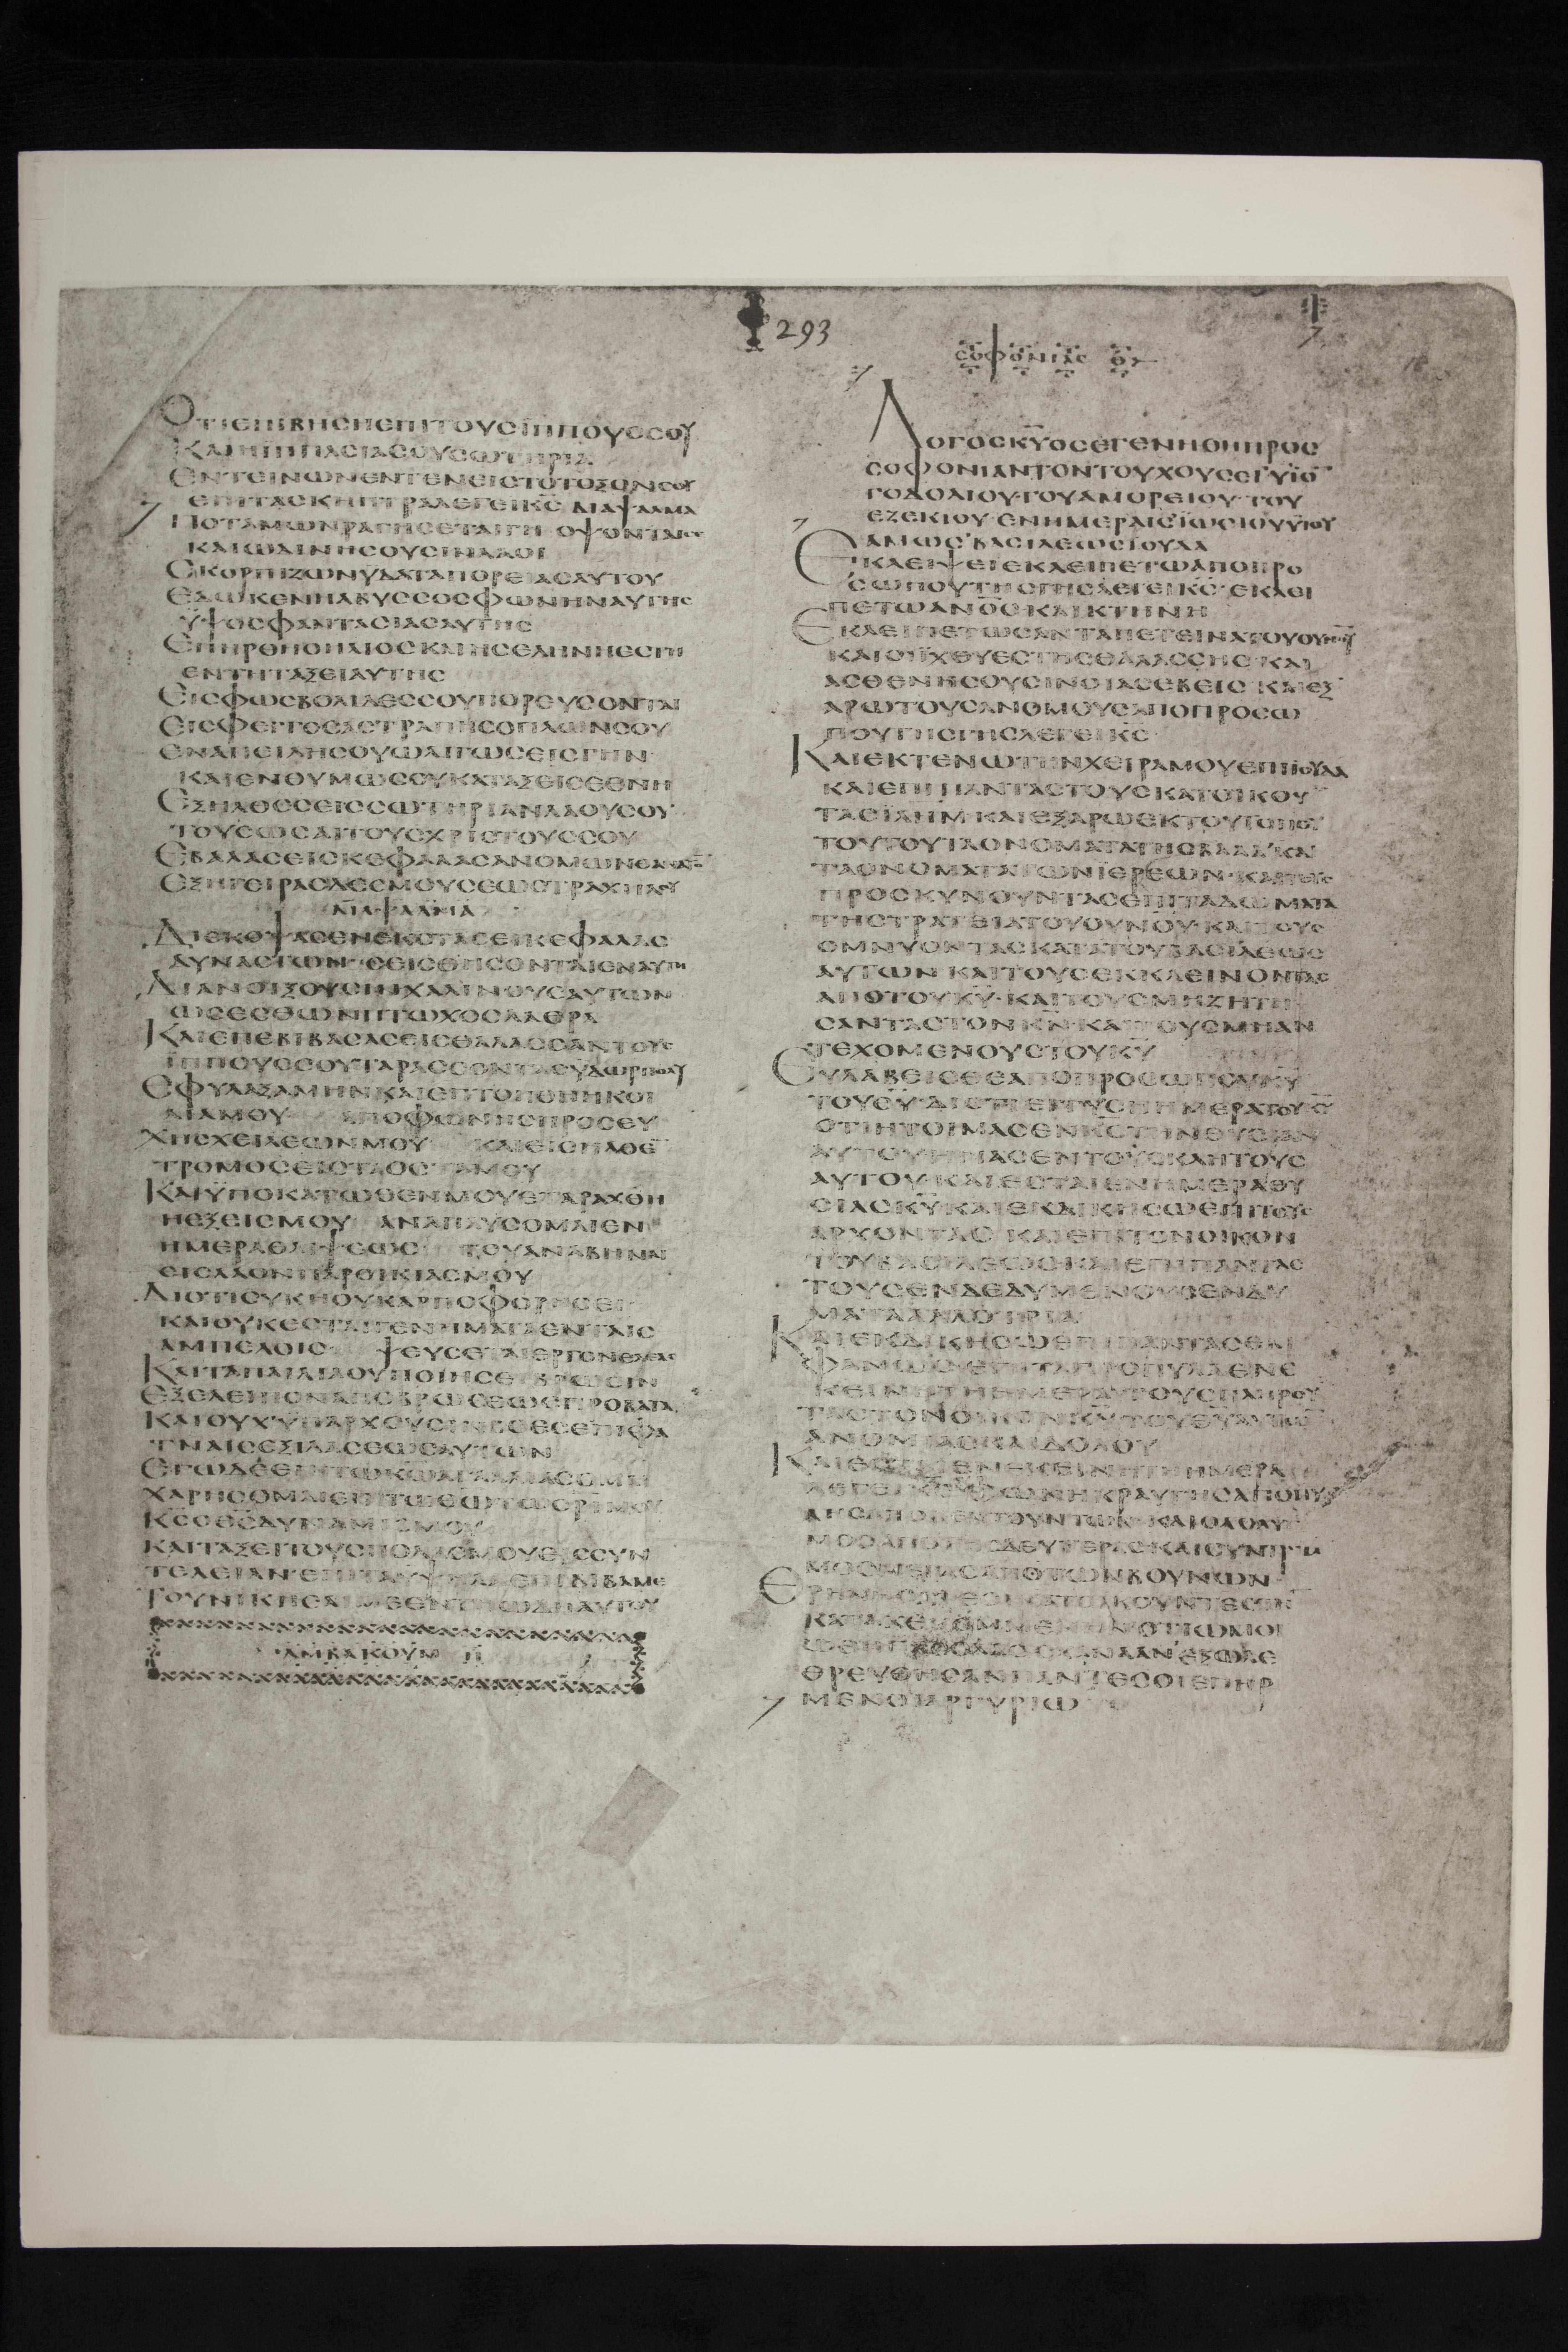 293
ΟΤΙΕΠΙΒΗCΗΕΠΙΤΟΥCΪΠΠΟΥCCΟΥ
ΚΑΙΗΪΠΠΑCΙΑCΟΥCΩΤΗΡΙΑ
ΕΝΤΕΙΝΩΝΕΝΤΕΝΕΙCΤΟΤΟΞΟΝCΟΥ
ΕΠΙΤΑCΚΗΠΤΡΑΛΕΓΕΙΚC ΔΙΑΨΑΛΜΑ
ΠΟΤΑΜΩΝΡΑΓΗCΕΤΑΙΓΗ ΟΨΟΝΤΑΙ
ΚΑΙΩΔΙΝΗCΟΥCΙΝΛΑΟΙ
CΚΟΡΠΙΖΩΝΫΔΑΤΑΠΟΡΕΙΑCΑΥΤΟΥ
ΕΔΩΚΕΝΗΑΒΥCCΟCΦΩΝΗΝΑΥΤΗC
ΫΨΟCΦΑΝΤΑCΙΑCΑΥΤΗC
ΕΠΗΡΘΗΟΗΛΙΟCΚΑΙΗCΕΛΗΝΗΕCΤΗ
ΕΝΤΗΤΑΞΕΙΑΥΤΗC
ΕΙCΦΩCΒΟΛΙΔΕCCΟΥΠΟΡΕΥCΟΝΤΑΙ
ΕΙCΦΕΓΓΟCΑCΤΡΑΠΗCΟΠΛΩΝCΟΥ
ΕΝΑΠΕΙΛΗCΟΥΩΛΙΓΩCΕΙCΓΗΝ
ΚΑΙΕΝΘΥΜΩCΟΥΚΑΤΑΞΕΙCΕΘΝΗ
ΕΞΗΛΘΕCΕΙCCΩΤΗΡΙΑΝΛΑΟΥCΟΥ
ΤΟΥCΩCΑΙΤΟΥCΧΡΙCΤΟΥCCΟΥ
ΕΒΑΛΑCΕΙCΚΕΦΑΛΑCΑΝΟΜΩΝΘΑΝΑΤΟ
ΕΞΗΓΕΙΡΑCΔΕCΜΟΥCΕΩCΤΡΑΧΗΛΟΥ
ΔΙΑΨΑΛΜΑ
ΔΙΕΚΟΨΑCΕΝΕΚCΤΑCΕΙΚΕΦΑΛΑC
ΔΥΝΑCΤΩΝ CΕΙCΘΗCΟΝΤΑΙΕΝΑΥΤΗ
ΔΙΑΝΟΙΞΟΥCΙΝΧΑΛΙΝΟΥCΑΥΤΩΝ
ΩCΕCΘΩΝΠΤΩΧΟCΛΑΘΡΑ
ΚΑΙΕΠΕΒΙΒΑCΑCΕΙCΘΑΛΑCCΑΝΤΟΥC
ΪΠΠΟΥCCΟΥΤΑΡΑCCΟΝΤΑCΫΔΩΡΠΟΛΥ
ΕΦΥΛΑΞΑΜΗΝΚΑΙΕΠΤΟΗΘΗΗΚΟΙ
ΛΙΑΜΟΥ ΑΠΟΦΩΝΗCΠΡΟCΕΥ
ΧΗCΧΕΙΛΕΩΝΜΟΥ ΚΑΙΕΙCΗΛΘΕ
ΤΡΟΜΟCΕΙCΤΑΟCΤΑΜΟΥ
ΚΑΙΫΠΟΚΑΤΩΘΕΝΜΟΥΕΤΑΡΑΧΘΗ
ΗΕΞΕΙCΜΟΥ ΑΝΑΠΑΥCΟΜΑΙΕΝ
ΗΜΕΡΑΘΛΙΨΕΩC ΤΟΥΑΝΑΒΗΝΑΙ
ΕΙCΛΑΟΝΠΑΡΟΙΚΙΑCΜΟΥ
ΔΙΟΤΙCΥΚΗΟΥΚΑΡΠΟΦΟΡΗCΕΙ
ΚΑΙΟΥΚΕCΤΑΙΓΕΝΗΜΑΤΑΕΝΤΑΙC
ΑΜΠΕΛΟΙC ΨΕΥCΕΤΑΙΕΡΓΟΝΕΛΑΙΑC
ΚΑΙΤΑΠΑΙΔΙΑΟΥΠΟΙΗCΕΙΒΡΩCΙΝ
ΕΞΕΛΕΙΠΟΝΑΠΟΒΡΩCΕΩCΠΡΟΒΑΤΑ
ΚΑΙΟΥΧΫΠΑΡΧΟΥCΙΝΒΟΕCΕΠΙΦΑ
ΤΝΑΙCΕΞΙΛΑCΕΩCΑΥΤΩΝ
ΕΓΩΔΕΕΝΤΩΚΩΑΓΑΛΛΙΑCΟΜΑΙ
ΧΑΡΗCΟΜΑΙΕΠΙΤΩΘΩΤΩCΩΤΗΡΙΜΟΥ
ΚCΟΘCΔΥΝΑΜΙCΜΟΥ
ΚΑΙΤΑΞΕΙΤΟΥCΠΟΔΑCΜΟΥΕΙCCΥΝ
ΤΕΛΕΙΑΝ ΕΠΙΤΑΫΨΗΛΑΕΠΙΒΙΒΑΜΕ
ΤΟΥΝΙΚΗCΑΙΜΕΕΝΤΗΩΔΗΑΥΤΟΥ
ΑΜΒΑΚΟΥΜ Η
CΟΦΟΝΙΑC Θ
ΛΟΓΟCΚΥΟCΕΓΕΝΗΘΗΠΡΟC
CΟΦΟΝΙΑΝΤΟΝΤΟΥΧΟΥCΕΙΥΪΟ
ΓΟΔΟΛΙΟΥ ΤΟΥΑΜΟΡΕΙΟΥ ΤΟΥ
ΕΖΕΚΙΟΥ ΕΝΗΜΕΡΑΙCΪΩCΙΟΥΥΪΟΥ
ΑΜΩC ΒΑCΙΛΕΩCΙΟΥΔΑ
ΕΚΛΕΙΨΕΙΕΚΛΕΙΠΕΤΩΑΠΟΠΡΟ
CΩΠΟΥΤΗCΓΗCΛΕΓΕΙΚC ΕΚΛΕΙ
ΠΕΤΩΑΝΟCΚΑΙΚΤΗΝΗ
ΕΚΛΕΙΠΕΤΩCΑΝΤΑΠΕΤΕΙΝΑΤΟΥΟΥΝΟΥ
ΚΑΙΟΙΪΧΘΥΕCΤΗCΘΑΛΑCCΗC ΚΑΙ
ΑCΘΕΝΗCΟΥCΙΝΟΙΑCΕΒΕΙC ΚΑΙΕΞ
ΑΡΩΤΟΥCΑΝΟΜΟΥCΑΠΟΠΡΟCΩ
ΠΟΥΤΗCΓΗCΛΕΓΕΙΚC
ΚΑΙΕΚΤΕΝΩΤΗΝΧΕΙΡΑΜΟΥΕΠΙΙΟΥΔΑ
ΚΑΙΕΠΙΠΑΝΤΑCΤΟΥCΚΑΤΟΙΚΟΥ
ΤΑCΪΛΗΜ ΚΑΙΕΞΑΡΩΕΚΤΟΥΤΟΠΟΥ
ΤΟΥΤΟΥΤΑΟΝΟΜΑΤΑΤΗCΒΑΑΛ ΚΑΙ
ΤΑΟΝΟΜΑΤΑΤΩΝΪΕΡΕΩΝ ΚΑΙΤΟΥC
ΠΡΟCΚΥΝΟΥΝΤΑCΕΠΙΤΑΔΩΜΑΤΑ
ΤΗCΤΡΑΤΕΙΑΤΟΥΟΥΝΟΥ ΚΑΙΤΟΥC
ΟΜΝΥΟΝΤΑCΚΑΤΑΤΟΥΒΑCΙΛΕΩC
ΑΥΤΩΝ ΚΑΙΤΟΥCΕΚΚΛΕΙΝΟΝΤΑC
ΑΠΟΤΟΥΚΥ ΚΑΙΤΟΥCΜΗΖΗΤΗ
CΑΝΤΑCΤΟΝΚΝ ΚΑΙΤΟΥCΜΗΑΝ
ΤΕΧΟΜΕΝΟΥCΤΟΥΚΥ
ΕΥΛΑΒΕΙCΘΕΑΠΟΠΡΟCΩΠΟΥΚΥ
ΤΟΥΘΥ ΔΙΟΤΙΕΓΓΥCΗΗΜΕΡΑΤΟΥΚΥ
ΟΤΙΗΤΟΙΜΑCΕΝΚCΤΗΝΘΥCΙΑΝ
ΑΥΤΟΥΗΓΙΑCΕΝΤΟΥCΚΛΗΤΟΥC
ΑΥΤΟΥ ΚΑΙΕCΤΑΙΕΝΗΜΕΡΑΘΥ
CΙΑCΚΥΚΑΙΕΚΔΙΚΗCΩΕΠΙΤΟΥC
ΑΡΧΟΝΤΑC ΚΑΙΕΠΙΤΟΝΟΙΚΟΝ
ΤΟΥΒΑCΙΛΕΩCΚΑΙΕΠΙΠΑΝΤΑC
ΤΟΥCΕΝΔΕΔΥΜΕΝΟΥCΕΝΔΥ
ΜΑΤΑΑΛΛΟΤΡΙΑ
ΚΑΙΕΚΔΙΚΗCΩΕΠΙΠΑΝΤΑCΕΜ
ΦΑΝΩCΕΠΙΤΑΠΡΟΠΥΛΑΕΝΕ
ΚΕΙΝΗΤΗΗΜΕΡΑΤΟΥCΠΛΗΡΟΥ
ΤΑCΤΟΝΟΙΚΟΝΚΥΤΟΥΘΥΑΥΤΩ
ΑΝΟΜΙΑCΚΑΙΔΟΛΟΥ
ΚΑΙΕCΤΑΙΕΝΕΚΕΙΝΗΤΗΗΜΕΡΑ
ΛΕΓΕΙΚCΦΩΝΗΚΡΑΥΓΗCΑΠΟΠΥ
ΛΗCΑΠΟΚΕΝΤΟΥΝΤΩΝ ΚΑΙΟΛΟΛΥ
ΜΟCΑΠΟΤΗCΔΕΥΤΕΡΑCΚΑΙCΥΝΤΡΙ
ΜΟCΜΕΓΑCΑΠΟΤΩΝΒΟΥΝΩΝ